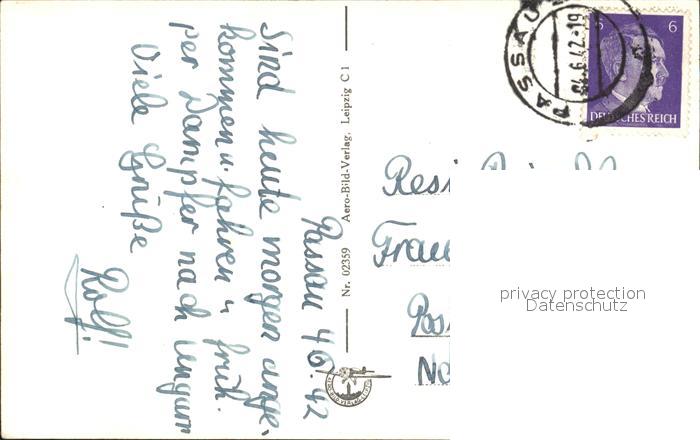 Passau 4.6.42
Sind heute morgen ange-
kommen u. fahren
früh.
per Dampfer nach Ungarn
Viele Grüße
Rolf!
Nr. 02359 Aero-Bild-Verlag, Leipzig C 1
PASSAU
6.42-19
6
DEUTSCHES REICH
privacy protection
Datenschutz